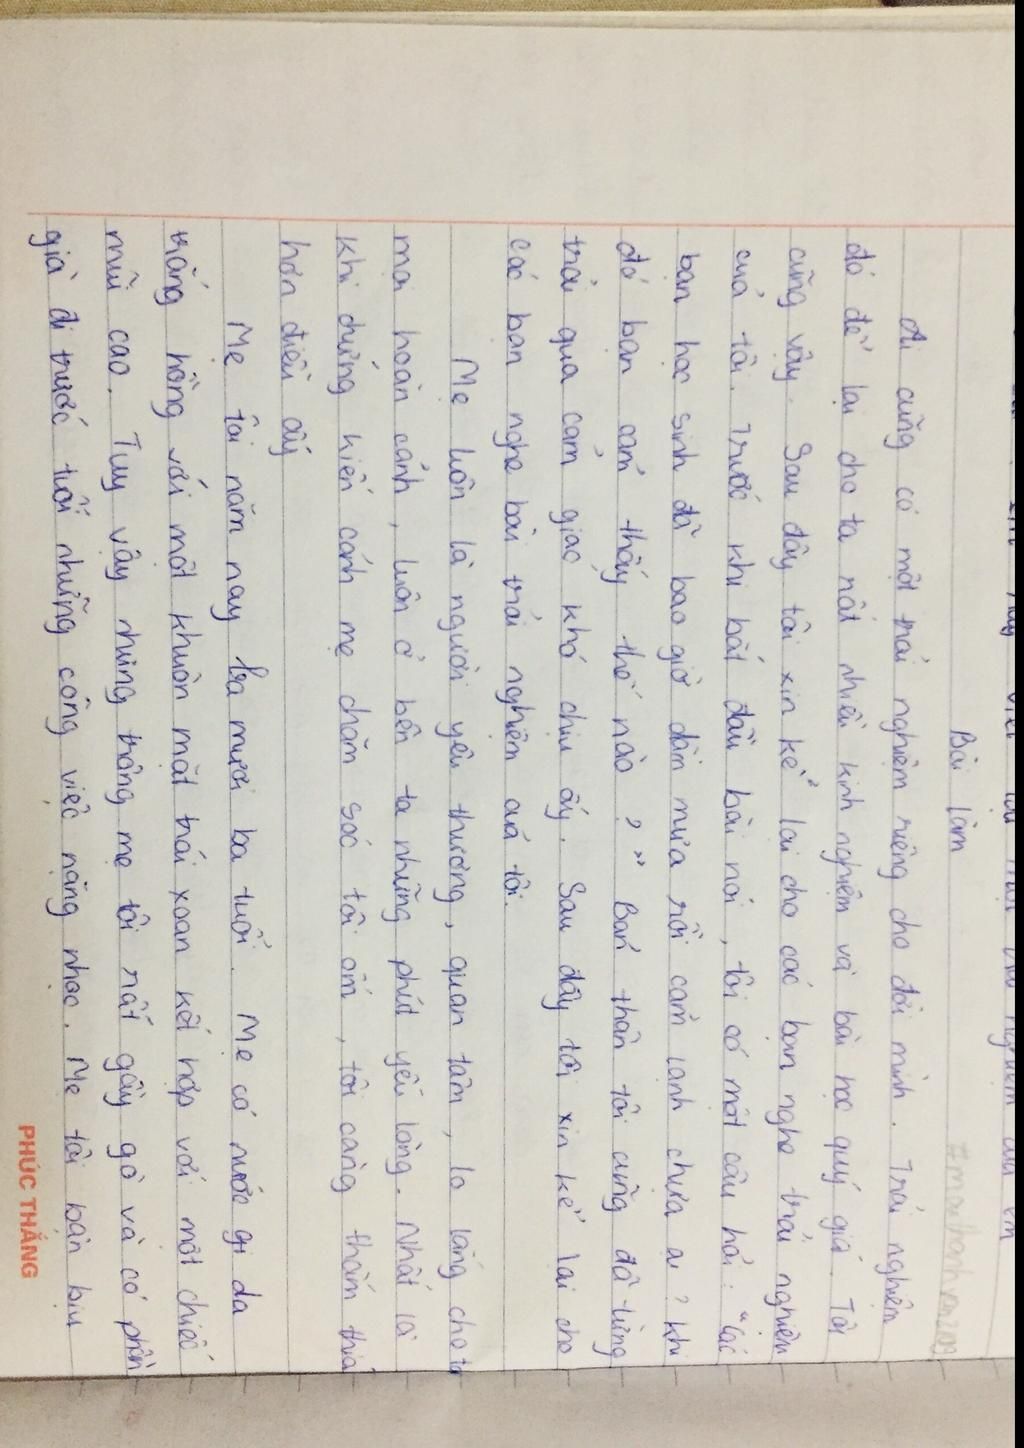 Bài làm
#maithanhvan2109
Ai cũng có một trải nghiệm riêng cho đời mình. Trải nghiệm
đó để lại cho ta rất nhiều kinh nghiệm và bài học quý giá. Tôi
cũng vậy. Sau đây tôi xin kể lại cho các bạn nghe trải nghiệm
cuả tôi. Trước khi bắt đầu bài nói, tôi có một câu hỏi: "Các
bạn học sinh đã bao giờ dầm mưa rồi cảm lạnh chưa ạ? khi
đó bạn cảm thấy thế nào?" Bản thân tôi cũng đã từng
trải qua cảm giác khó chịu ấy. Sau đây tôi xin kể lại cho
các bạn nghe bài trải nghiệm cuả tôi.
Mẹ luôn là người yêu thương, quan tâm, lo lắng cho ta
mọi hoàn cảnh, luôn ở bên ta những phút yếu lòng. Nhất là
khi chứng kiến cảnh mẹ chăm sóc tôi ốm, tôi càng thấm thiá
hơn điều ấy
Mẹ tôi năm nay ba mươi ba tuổi. Mẹ có nước gi da
trắng hồng với một khuôn mặt trái xoan kết hợp với một chiếc
mũi cao. Tuy vậy nhưng trông mẹ tôi rất gầy gò và có phần
già đi trước tuổi những công việc nặng nhọc. Mẹ tôi bận bịu
PHÚC THẮNG